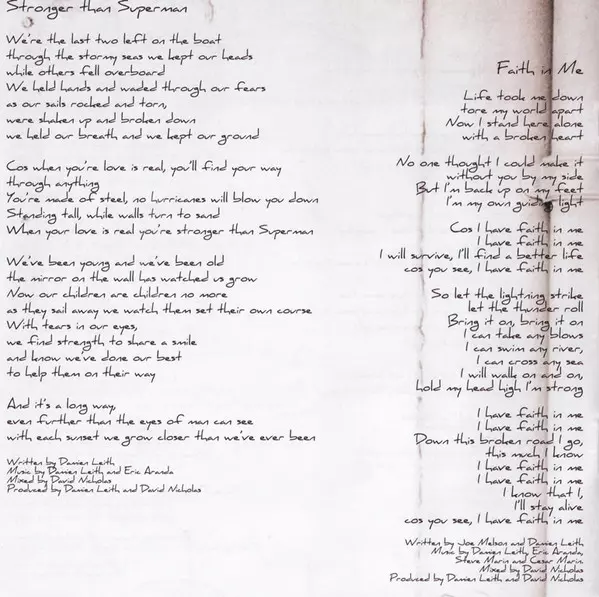 Stronger than Superman
We're the last two left on the boat
through the stormy seas we kept our heads
while others fell overboard
We held hands and waded through our fears
as our sails rocked and torn,
were shaken up and broken down
we held our breath and we kept our ground
Cos when you're love is real, you'll find your way
through anything
You're made of steel, no hurricanes will blow you down
Standing tall, while walls turn to sand
When your love is real you're stronger than Superman
We've been young and we've been old
the mirror on the wall has watched us grow
Now our children are children no more
as they sail away we watch them set their own course
With tears in our eyes,
we find strength to share a smile
and know we've done our best
to help them on their way
And it's a long way,
even further than the eyes of man can see
with each sunset we grow closer than we've ever been
Written by Damien Leith
Music by Damien Leith and Eric Aranda
Mixed by David Nicholas
Produced by Damien Leith and David Nicholas
Faith in Me
Life took me down
tore my world apart
Now I stand here alone
with a broken heart
No one thought I could make it
without you by my side
But I'm back up on my feet
I'm my own guiding light
Cos I have faith in me
I have faith in me
I will survive, I'll find a better life
cos you see, I have faith in me
So let the lightning strike
let the thunder roll
Bring it on, bring it on
I can take any blows
I can swim any river,
I can cross any sea
I will walk on and on,
hold my head high I'm strong
I have faith in me
I have faith in me
Down this broken road I go,
this much I know
I have faith in me
I have faith in me
I know that I,
I'll stay alive
cos you see, I have faith in me
Written by Joe Melson and Damien Leith
Music by Damien Leith, Eric Aranda,
Steve Marin and Cesar Marin.
Mixed by David Nicholas
Produced by Damien Leith and David Nicholas